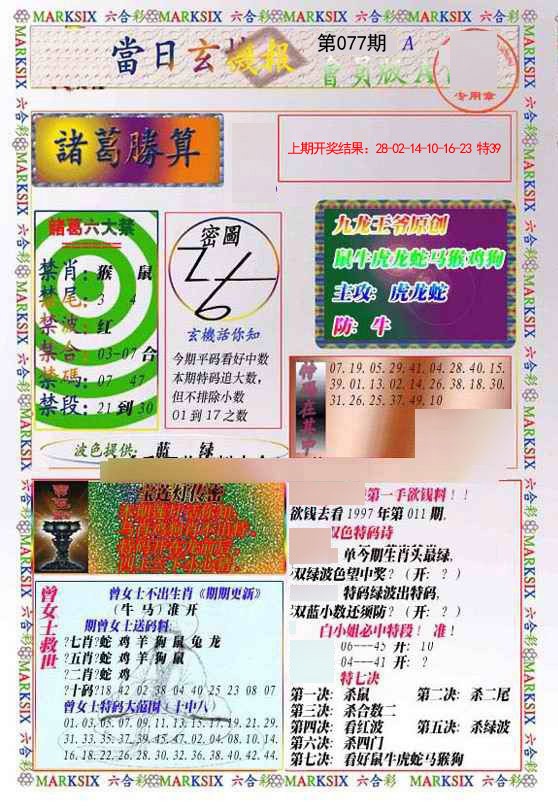 MARKSIX 六合彩 MARKSIX 六合彩 MARKSIX 六合彩 MARKSIX 六合彩 MARKSIX
當日玄機報
第077期 A
專用章
諸葛勝算
上期开奖结果：28-02-14-10-16-23 特39
諸葛六大禁
禁肖：猴 鼠
禁尾：3 4
禁波：红
禁合：03-07合
禁碼：07 47
禁段：21到30
密圖
玄機話你知
今期平码看好中数
本期特码追大数，
但不排除小数
01到17之数
九龙王爷原创
鼠牛虎龙蛇马猴鸡狗
主攻：虎龙蛇
防：牛
07.19.05.29.41.04.28.40.15.
39.01.13.02.14.26.38.18.30.
31.26.25.37.49.10
波色提供：蓝 绿
宝莲灯传密
第一手欲钱料！！
欲钱去看1997年第011期，
双色特码诗
单今期生肖头最绿，
双绿波色望中奖？（开：？）
特码绿波出特码，
双蓝小数还须防？（开：？）
白小姐必中特段！准！
06---45 开：10
04---41 开：？
特七决
第一决：杀鼠 第二决：杀二尾
第三决：杀合数二
第四决：看红波 第五决：杀绿波
第六决：杀四门
第七决：看好鼠牛虎蛇马猴狗
曾女士救世
曾女士不出生肖《期期更新》
（牛 马）准 开
期曾女士送码料：
?七肖?蛇 鸡 羊 狗 鼠 兔 龙
?五肖?蛇 鸡 羊 狗 鼠
?二肖?蛇 鸡
?十码?18 42 02 38 04 40 25 23 08 07
曾女士特码大范围（十中八）
01. 03. 05. 07. 09. 11. 13. 15. 17. 19. 21. 29.
31. 33. 35. 37. 39. 45. 47. 02. 04. 08. 10. 14.
16. 18. 22. 26. 28. 30. 32. 36. 38. 40. 42. 44.
MARKSIX 六合彩 MARKSIX 六合彩 MARKSIX 六合彩 MARKSIX 六合彩 MARKSIX